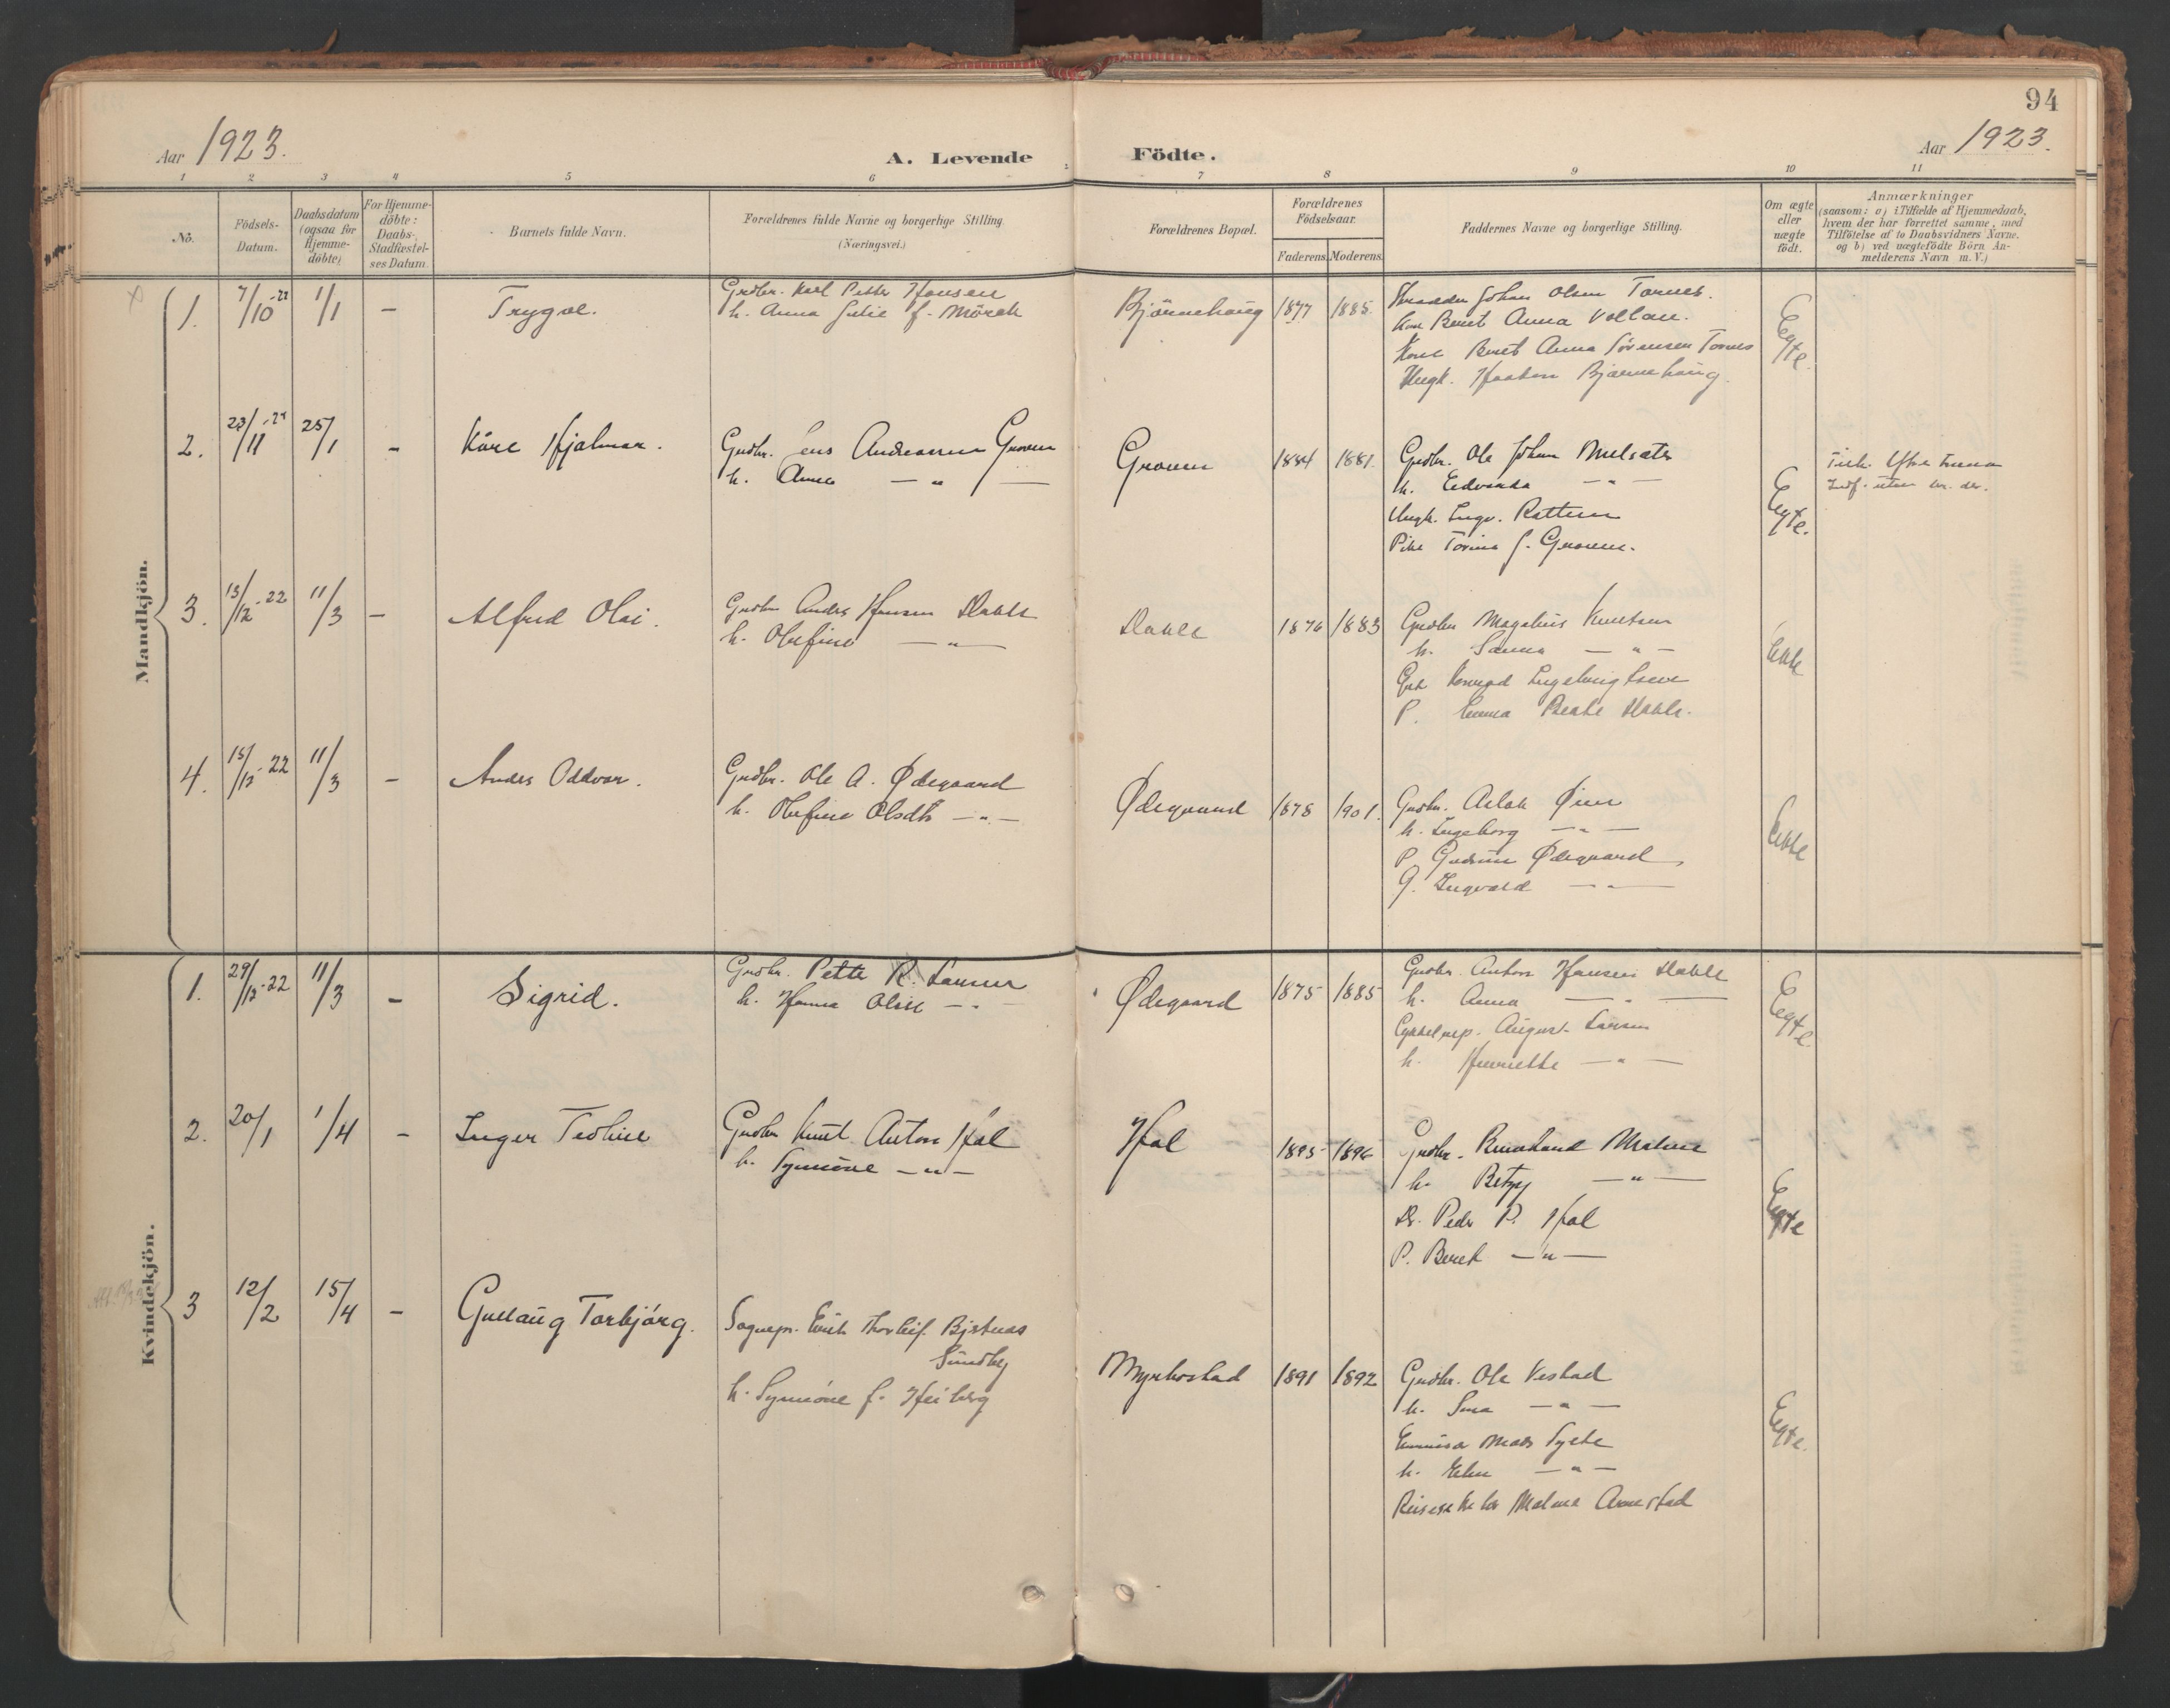 94
Aar 1923.
A. Levende Födte.
Aar 1923.
1 2 3 4 5 6 7 8 9 10 11
No.
Födsels-Datum.
Daabsdatum (ogsaa for Hjemme-döbte)
For Hjemme-döbte: Daabs-, Stadfæstel-ses Datum.
Barnets fulde Navn.
Forældrenes fulde Navne og borgerlige Stilling. (Næringsvei.)
Forældrenes Bopæl.
Forældrenes Födselsaar.
Faderens. Moderens.
Faddernes Navne og borgerlige Stilling.
Om ægte eller uægte födt.
Anmærkninger
(saasom: a) i Tilfælde af Hjemmedaab, hvem der har forrettet samme, med Tilföielse af to Daabsvidners Navne. og b) ved uægtefödte Börn An-melderens Navn m. V.)
Mandkjön.
1. 7/10-22 1/1 – Trygve.
Grdbr. Karl Petter Hansen
h. Anna Julie f. Mörch
Bjørnehaug 1877 1885.
Johan Olsen Tornes.
Kone Beret Anna Vollan.
Kone Beret Anna Sörensen Tornes
Ungk. Haakon Bjørnehaug.
Egte.
2. 23/11-22 25/1 – Kåre Hjalmar.
Grdbr. Jens Andreassen Groven
h. Anna — " —
Groven 1884 1881.
Grdbr. Ole Johan Melsæter
h. Edvarda — " —
Ungk. Ingv. Rottem
Pike Torina J. Groven.
Egte.
3. 13/12-22 11/3 – Alfred Olai.
Grdbr Anders Hansen Hable
h. Olufine — " —
1876 1883
Grdbr Magelius Knutsen
h. Sanna — " —
P. Emma Beate
Ekte
4. 15/12-22 11/3 – Anders Oddvar.
Grdbr. Ole A. Ødegaard
h. Olufine Olsdtr — " —
Ødegaard 1878 1901.
Grdbr. Aslak Øien
h. Ingeborg — " —
P. Gudrun Ødegaard
G. Ingvald — " —
Ekte
Kvindekjön.
1. 29/12-22 11/3 – Sigrid.
Grdbr. Petter R. Larsen
h. Hanna Olsen — " —
Ødegaard 1875 1885
Grdbr. Anton Hansen
h. Anna — " —
August Larsen
h. Henriette — " —
Egte.
2. 20/1 1/4 – Inger Teoline
Grdbr Knut Anton Hol
h. Synnöve — " —
Hol 1895 1896
Grdbr. Malme
h. Betzy — " —
Peder P. Hol
P. Beret — " —
Egte
3 12/2 15/4 – Gullaug Torbjörg.
Sognepr. Erik Thorleif Bjertnæs
Sundby
h. Synnöve f. Heiberg
Myrbostad 1891 1892
Grdbr. Ole Vestad
h. — " —
Mads Sylte
h. — " —
Malmo Arnestad
Egte.